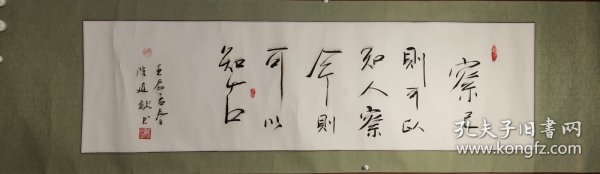 察己
則可以
知人察
今則
可以
知古
壬辰孟春
孔夫子旧书网
www.kongfz.com